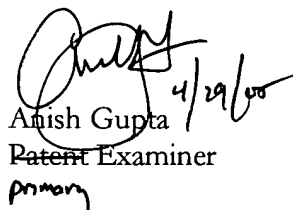 4/29/05
Anish Gupta
Patent Examiner
primary